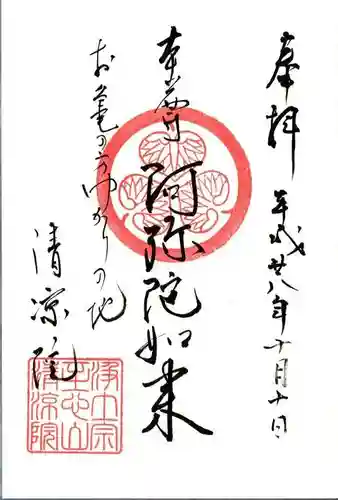 奉拝
平成廿八年十月十日
本尊
阿弥陀如来
お亀の方ゆかりの地
清凉院
浄土宗
清凉院